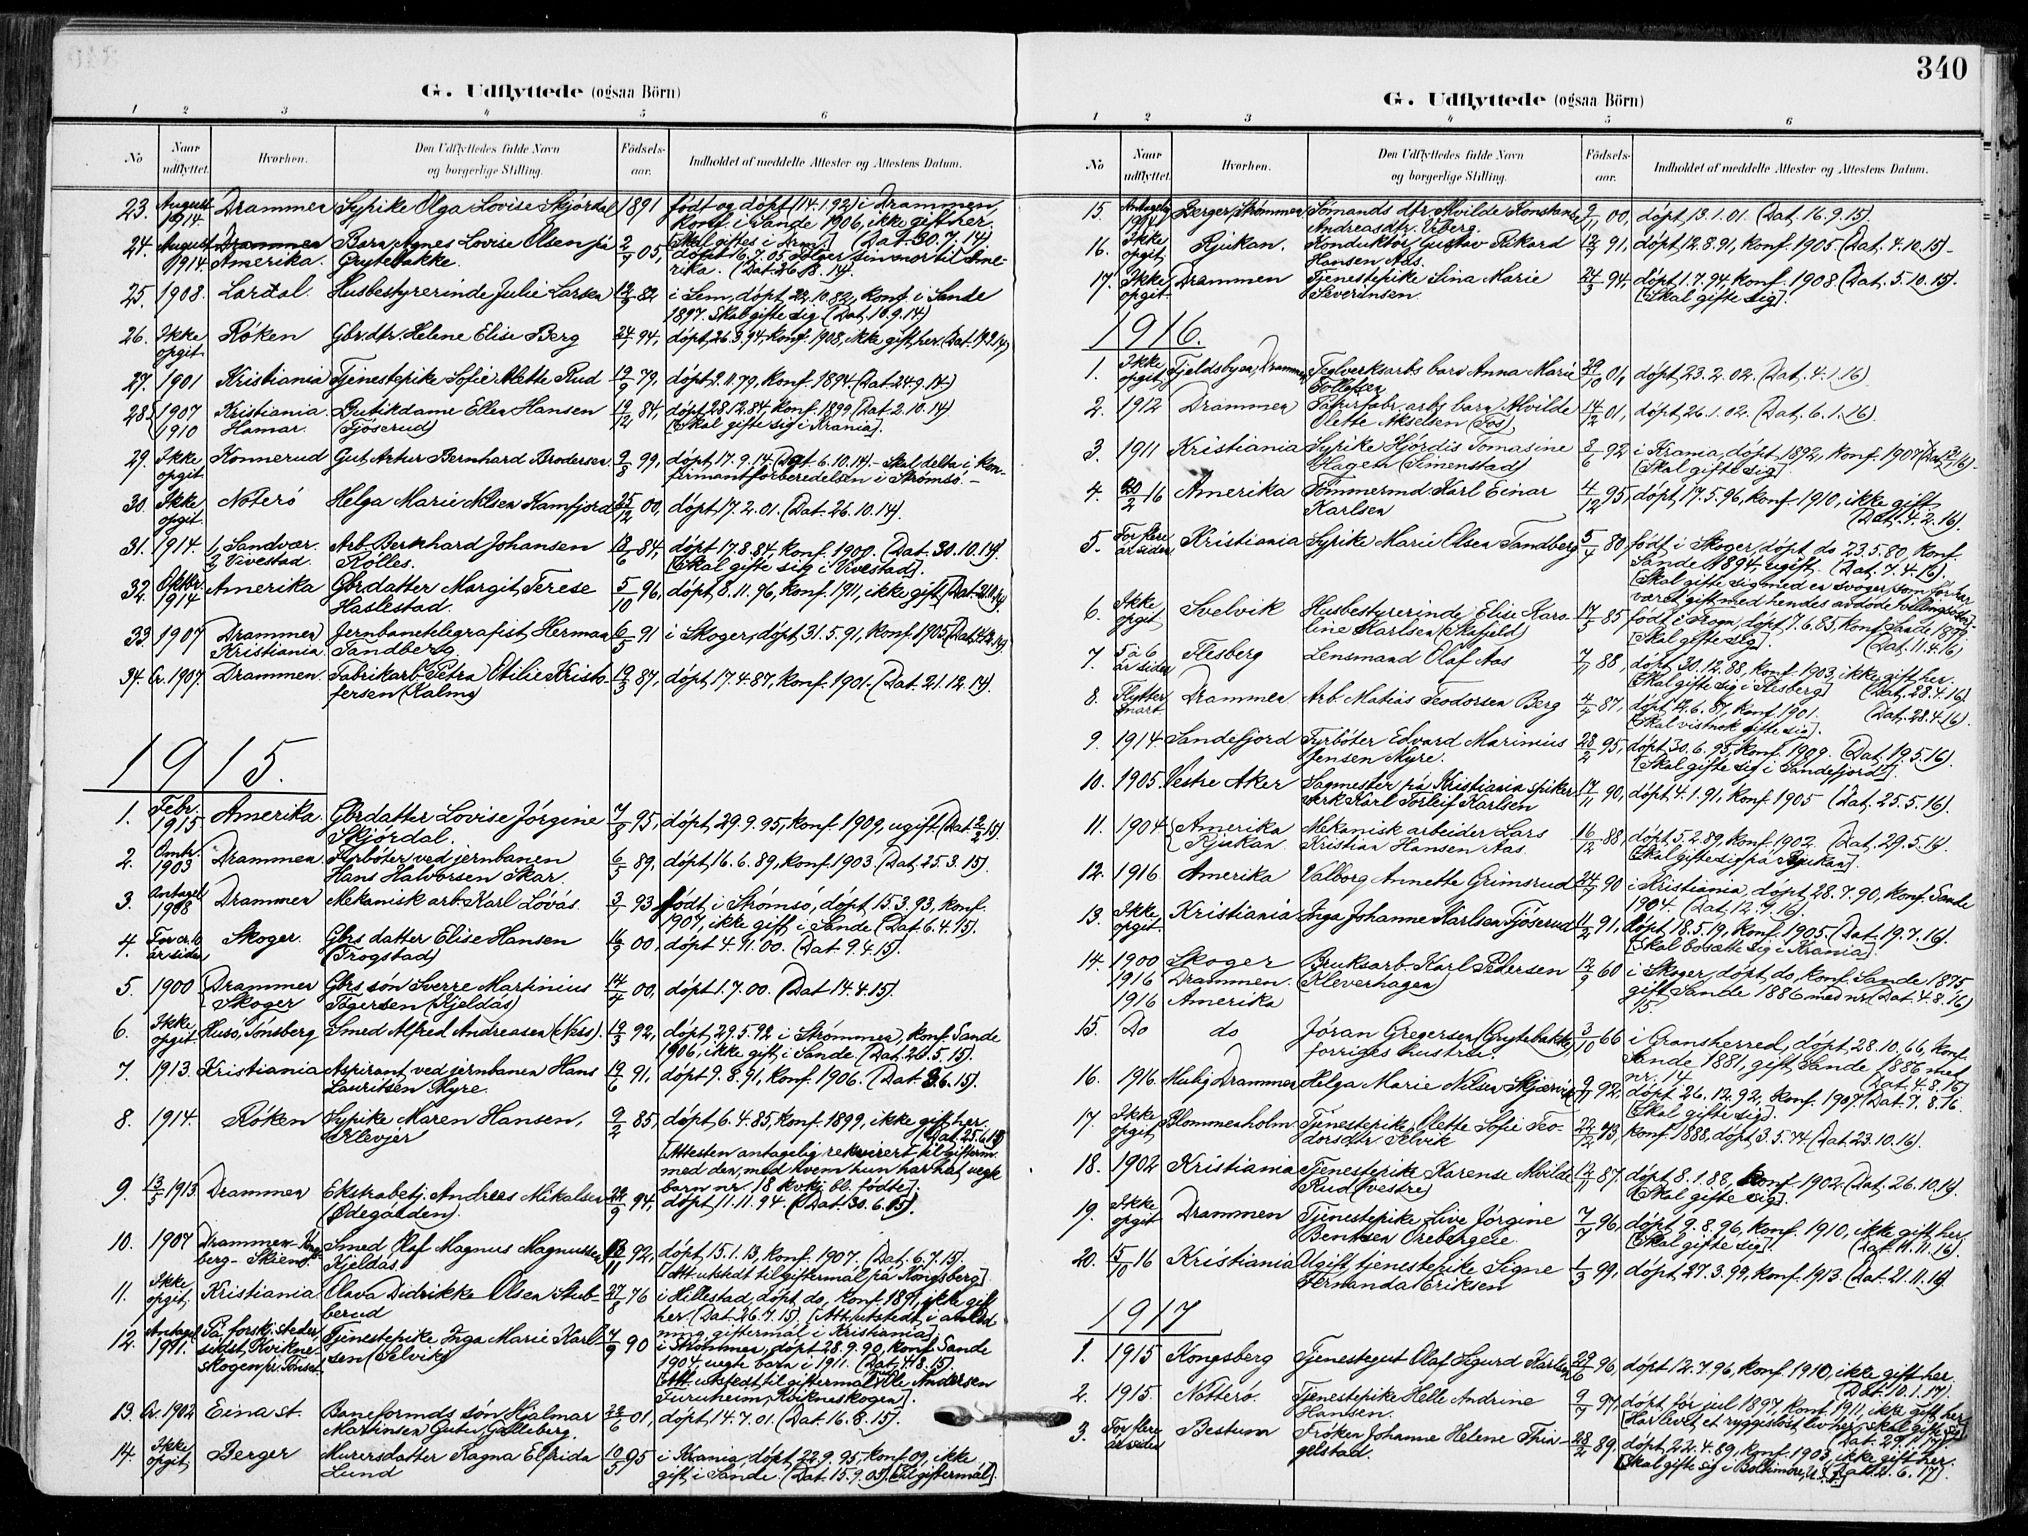 G. Udflyttede (ogsaa Börn)
1 2 3 4 5 6
No
Naar udflyttet.
Hvorhen.
Den Udflyttedes fulde Navn og borgerlige Stilling.
Fødsels-aar.
Indholdet af meddelte Attester og Attestens Datum.
23. August 1914. Drammen Sypike Olga Lovise Skjørdal 1891 født og døpt (14.1.92) i Drammen,
konf. i Sande 1906, ikke gift her,
[Skal giftes i Drm.] (Dat. 30.7.14)
24. August 1914. Amerika. Barn Agnes Lovise Olsen på Grytebakke. 2/7 05, døpt 16.7.05, følger sin mor til Ame-
rika. (Dat. 26.8.14.
25. 1908. Lardal. Husbestyrerinde Julie Larsen 12/9 82 i Sem, døpt 22.10.82, konf. i Sande
1897. Skal gifte sig (Dat. 10.9.14)
26. Ikke opgit Røken Gbr.dtr. Helene Elise Berg 24/1 94, døpt 26.3.94, konf. 1908, ikke gift her.
27. 1901 Kristiania Tjenestepike Sofie Alette Rud 12/9 79, døpt 2.11.79, konf. 1894. (Dat. 24.9.14)
28. 1907 1910 Kristiania. Hamar. Butikdame Ellen Hansen (Tjøserud) 19/12 84, døpt 28.12.84, konf. 1899, (Dat. 2.10.14).
[Skal gifte sig i Krania].
29. Ikke opgit Konnerud Gut Artur Bernhard Brodersen. 2/3 99, døpt 17.9.14. (Dat. 6.10.14). - Skal delta i kon-
firmantforberedelsen i Strømsø. -
30. Ikke opgit Nøterø Helga Marie Nilsen Kamfjord 25/12 00, døpt 17.2.01. (Dat. 26.10.14).
31. 1914. 1/2 Sandvær. Vivestad. Arb. Bernhard Johansen Kølles. 18/6 84, døpt 17.8.84, konf. 1900. (Dat. 30.10.14)
[Skal gifte sig i Vivestad].
32. Oktbr. 1914 Amerika Gbrdatter Margit Terese Haslestad. 5/10 96, døpt 8.11.96, konf. 1911, ikke gift
33. 1907 Drammen Kristiania Jernbanetelegrafist Herman Sandberg. 6/5 91 i Skoger, døpt 31.5.91, konf. 1905
34. Cr. 1907. Drammen. Fabrikarb. Petra Otilie Kristo-
fersen (Kalmy) 19/3 87, døpt 17.4.87, konf. 1901. (Dat. 21.12.14).
1915.
1. Febr. 1915 Amerika. Gbrdatter Lovise Jørgine Skjørdal. 7/9 95, døpt 29.9.95, konf. 1909, ugift, (Dat. 2/2 15).
2. Omtr. 1903 Drammen. Fyrbøter ved jernbanen Hans Halvorsen Skar. 6/5 89, døpt 16.6.89, konf. 1903. (Dat. 25.3.15).
3. Antagel 1908 Drammen Mekanisk arb. Karl Løvås. 3/1 93 født i Strømsø, døpt 15.3.93, konf.
1907, ikke gift i Sande (Dat. 6.4.15).
4. For cr. 10 år siden, Skoger. Gbrs datter Elise Hansen (Trogstad) 00, døpt 4.11.00. (Dat. 9.4.15).
5. 1900 Drammen Skoger Gbrs søn Sverre Martinius Tøgersen (Kjeldås) 14/4 00, døpt 1.7.00. (Dat. 14.4.15).
6. Ikke opgit Husø, Tønsberg Smed Alfred Andreasen (Ness). 19/3 92, døpt 29.5.92 i Strømmen, konf. Sande
1906, ikke gift i Sande. (Dat. 26.5.15).
7. 1913. Kristiania Aspirant ved jernbanen Hans Lauritsen Myre. 19/6 91, døpt 9.8.91, konf. 1906. (Dat. 3.6.15).
8. 1914. Røken Sypike Maren Hansen, Klevjer 9/2 85, døpt 6.4.85, konf. 1899, ikke gift her.
(Dat. 25.6.15)
[Attesten antagelig rekvirert til gifterm.
med den, med hvem hun har hat uegte
barn nr. 18 kvkj. bl. fødte].
9. 13/5 1913. Drammen Ekstrabetj. Andreas Mikalsen (Ødegården). 22/9 94, døpt 11.11.94. (Dat. 30.6.15).
10. 1907 Drammen-Kongs-
berg - Skiens. Smed Olaf Magnus Magnussen Kjeldås. 92, døpt 15.1.13, konf. 1907. (Dat. 6.7.15).
[Att. utstedt til giftermål på Kongsberg].
11. Ikke opgit. Kristiania Olava Didrikke Olsen Stub-
berud 27/8 76 i Hillestad, døpt do, konf. 1891, ikke gift
her. (Dat. 26.7.15). [Att. utstedt i anled
ning giftermål i Kristiania].
12. Antagel 1911. På forskj. steder, sidst Kvikne-
skogen pr. Tønset. Tjenestepike Inga Marie Karl-
sen (Selvik) 7/9 90 i Strømmen, døpt 28.9.90, konf. Sande
1904, uegte barn i 1911. (Dat. 4.8.15).
[Att. utstedt til giftermål med Ole Andersen
Furuheim, Kvikneskogen].
13. Cr. 1902 Eina st. Baneformds søn Hjalmar
Martinsen Gutu, Galleberg. 23/6 01, døpt 14.7.01. (Dat. 16.8.15).
14. Ikke opgit Berger Murersdatter Ragna Elfrida Lund 10/5 95 i Krania, døpt 22.9.95, konf. 09, ikke
gift i Sande (Dat. 15.9.05) [Til giftermål].
340
G. Udflyttede (ogsaa Börn)
1 2 3 4 5 6
No
Naar udflyttet.
Hvorhen.
Den Udflyttedes fulde Navn og borgerlige Stilling.
Fødsels-aar.
Indholdet af meddelte Attester og Attestens Datum.
15. Antagelig 1914 Berger, Strømmen Sømands dtr. Alvilde Konstanse
Andreasdtr. Erberg. 9/1 00, døpt 13.1.01. (Dat. 16.9.15).
16. Ikke opgit Rjukan. Konduktør Gustav Rikard Hansen Aas. 12/7 91, døpt 12.8.91, konf. 1905 (Dat. 4.10.15)-
17. Ikke opgit Drammen Tjenestepike Lina Marie Severinsen. 24/3 94, døpt 1.7.94, konf. 1908 (Dat. 5.10.15).
[Skal gifte sig].
1916.
1. Ikke opgit Fjeldsbyen, Drammen Teglverksarbs barn Anna Marie Tollefsen 29/10 01, døpt 23.2.02. (Dat. 4.1.16).
2. 1912 Drammen Papirfabr. arbs barn Alvilde
Olette Akselsen (Fos) 14/12 01, døpt 26.1.02. (Dat. 6.1.16).
3. 1911 Kristiania Sypike Hjørdis Tomasine Hagen (Simenstad) 8/6 92 i Krania, døpt 1892, konf. 1907
[Skal gifte sig].
4. 20/2 16 Amerika Tømmermd. Karl Einar Karlsen 4/12 95, døpt 17.5.96, konf. 1910, ikke gift
(Dat. 4.2.16).
5. For flere år siden Kristiania Sypike Marie Olsen Tandberg 5/4 80, født i Skoger, døpt do 23.5.80, konf.
Sande 1894, ugift. (Dat. 7.4.16).
[Skal gifte sig med en svoger, som før har
været gift med hendes avdøde tvillingsøster].
6. Ikke opgit Svelvik Husbestyrerinde Elise Karo-
line Karlsen (Skafjeld) 17/5 85 født i døpt 7.6.85, konf. Sande 1899
[Skal gifte sig]. (Dat. 11.4.16)
7. 5 à 6 år siden Flesberg Lensmand Olaf Aas 7/11 88, døpt 30.12.88, konf. 1903, ikke gift her.
[Skal gifte sig i Flesberg] (Dat. 28.4.16).
8. Flytter snart. Drammen Arb. Matias Teodorsen Berg 4/4 87, døpt 12.6.87, konf. 1901. (Dat. 28.4.16).
[Skal vistnok gifte sig].
9. 1914 Sandefjord Fyrbøter Edvard Marinius Jensen Myre. 28/2 95, døpt 30.6.95, konf. 1909. (Dat. 19.5.16).
[Skal gifte sig i Sandefjord].
10. 1905. Vestre Aker Sagmester på Kristiania spiker
verk Karl Torleif Karlsen 17/11 90, døpt 4.1.91, konf. 1905 (Dat. 25.5.16).
11. 1904 Amerika Rjukan. Mekanisk arbeider Lars
Kristian Hansen Aas 16/12 88, døpt 5.2.89, konf. 1902. (Dat. 29.5.14.
[Skal gifte sig på Rjukan].
12. 1916 Amerika Valborg Annette Grimsrud 24/5 90 i Kristiania, døpt 28.7.90, konf. Sande
1904. (Dat. 12.7.16).
13. Ikke opgit Kristiania Inga Johanne Karlsen Tjøserud 11/2 91, døpt 18.5.19, konf. 1905 (Dat. 19.7.16).
[Skal bosætte sig i Krania].
14. 1900 1916 1916 Skoger Drammen. Amerika Bruksarb. Karl Pedersen (Kleverhagen) 12/9 60 i Skoger, døpt do, konf. Sande 1875
gift Sande 1886 med nr. (Dat. 4.8.16)
15.
15. Do do Jøran Gregersen (Grytebakke)
forriges hustru. 3/10 66 i Gransherred, døpt 28.10.66, konf.
Sande 1881, gift Sande 1886 med
nr. 14. (Dat. 4.8.16)
16. 1916. Mulig Drammen Helga Marie Nilsen Skjærvik 9/11 92, døpt 26.12.92, konf. 1907. (Dat. 7.8.16.
[Skal gifte sig].
17. Ikke opgit Blommenholm Tjenestepike Olette Sofie Teo-
dorsdtr. Selvik 22/12 73, konf. 1888, døpt 3.5.74 (Dat. 23.10.16).
18. 1902 Kristiania Tjenestepike Karense Alvilde
Rud (vestre) 12/11 87. døpt 8.1.88, konf 1902 (Dat. 26.10.16).
[Skal gifte sig].
19. Ikke opgit Drammen Tjenestepike Live Jørgine
Bentsen Orebergeie. 7/7 96, døpt 9.8.96, konf. 1910, ikke gift her,
[Skal gifte sig]. (Dat. 11.11.16).
20. 15/10 16 Kristiania Ugift tjenestepike Signe
Fernanda Eriksen 1/3 99, døpt 27.3.99, konf. 1913. (Dat. 21.11.16)
1917
1. 1915 Kongsberg Tjenestegut Olaf Sigurd Karlsen 29/6 96, døpt 12.7.96, konf. 1910, ikke gift her.
(Dat. 10.1.17).
2. 1915. Nøtterø. Tjenestepike Helle Andrine Hansen. 9/7 97, døpt før jul 1897, konf. 1911, ikke gift her
[Har levet et ryggesløst liv her, skal gifte sig]
Dat. 29.1.17).
3. For flere år siden Bestum Frøken Johanne Helene Thin-
gelstad. 28/2 89, døpt 22.4.89, konf. 1903, ikke gift her.
[Skal gifte sig i Baltimore, U.S.A.] (Dat. 21.6.17).